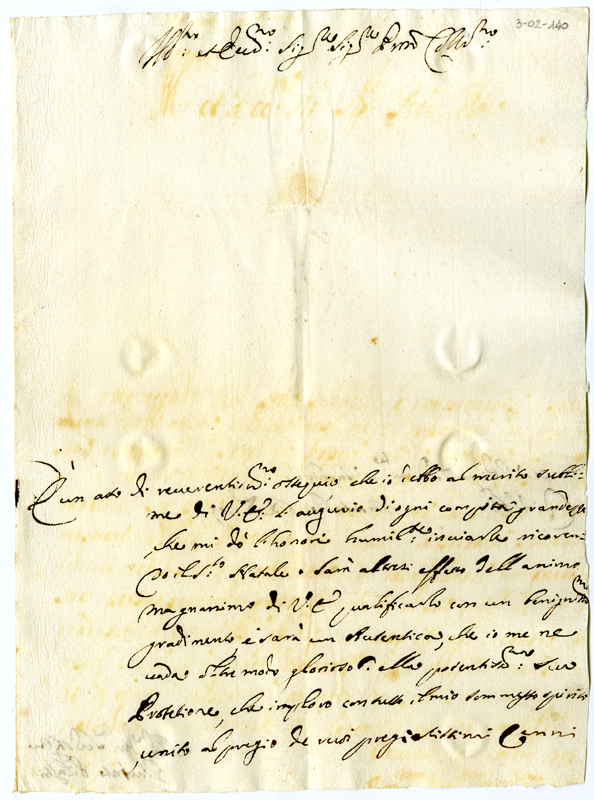 3-02-140
Ill.mo et Ecc.mo Sig.re Sig.re Pron Coll.mo
È un atto di reverentiss.mo ossequio che io debbo al merito subli-
me di V.E. l'augurio di ogni compita grandezza
che mi dò l'honore humil.te inviarle ricoren-
do il S.to Natale e sarà altresi effetto dell animo
magnanimo di V.E. qualificarlo con un benigniss.mo
gradimento e sarà un Autentica, che io me ne
vada oltre modo glorioso della potentiss.ma sua
Protetione, che imploro con tutto il mio sommesso spirito
unito al pregio de suoi pregiatissimi Cenni